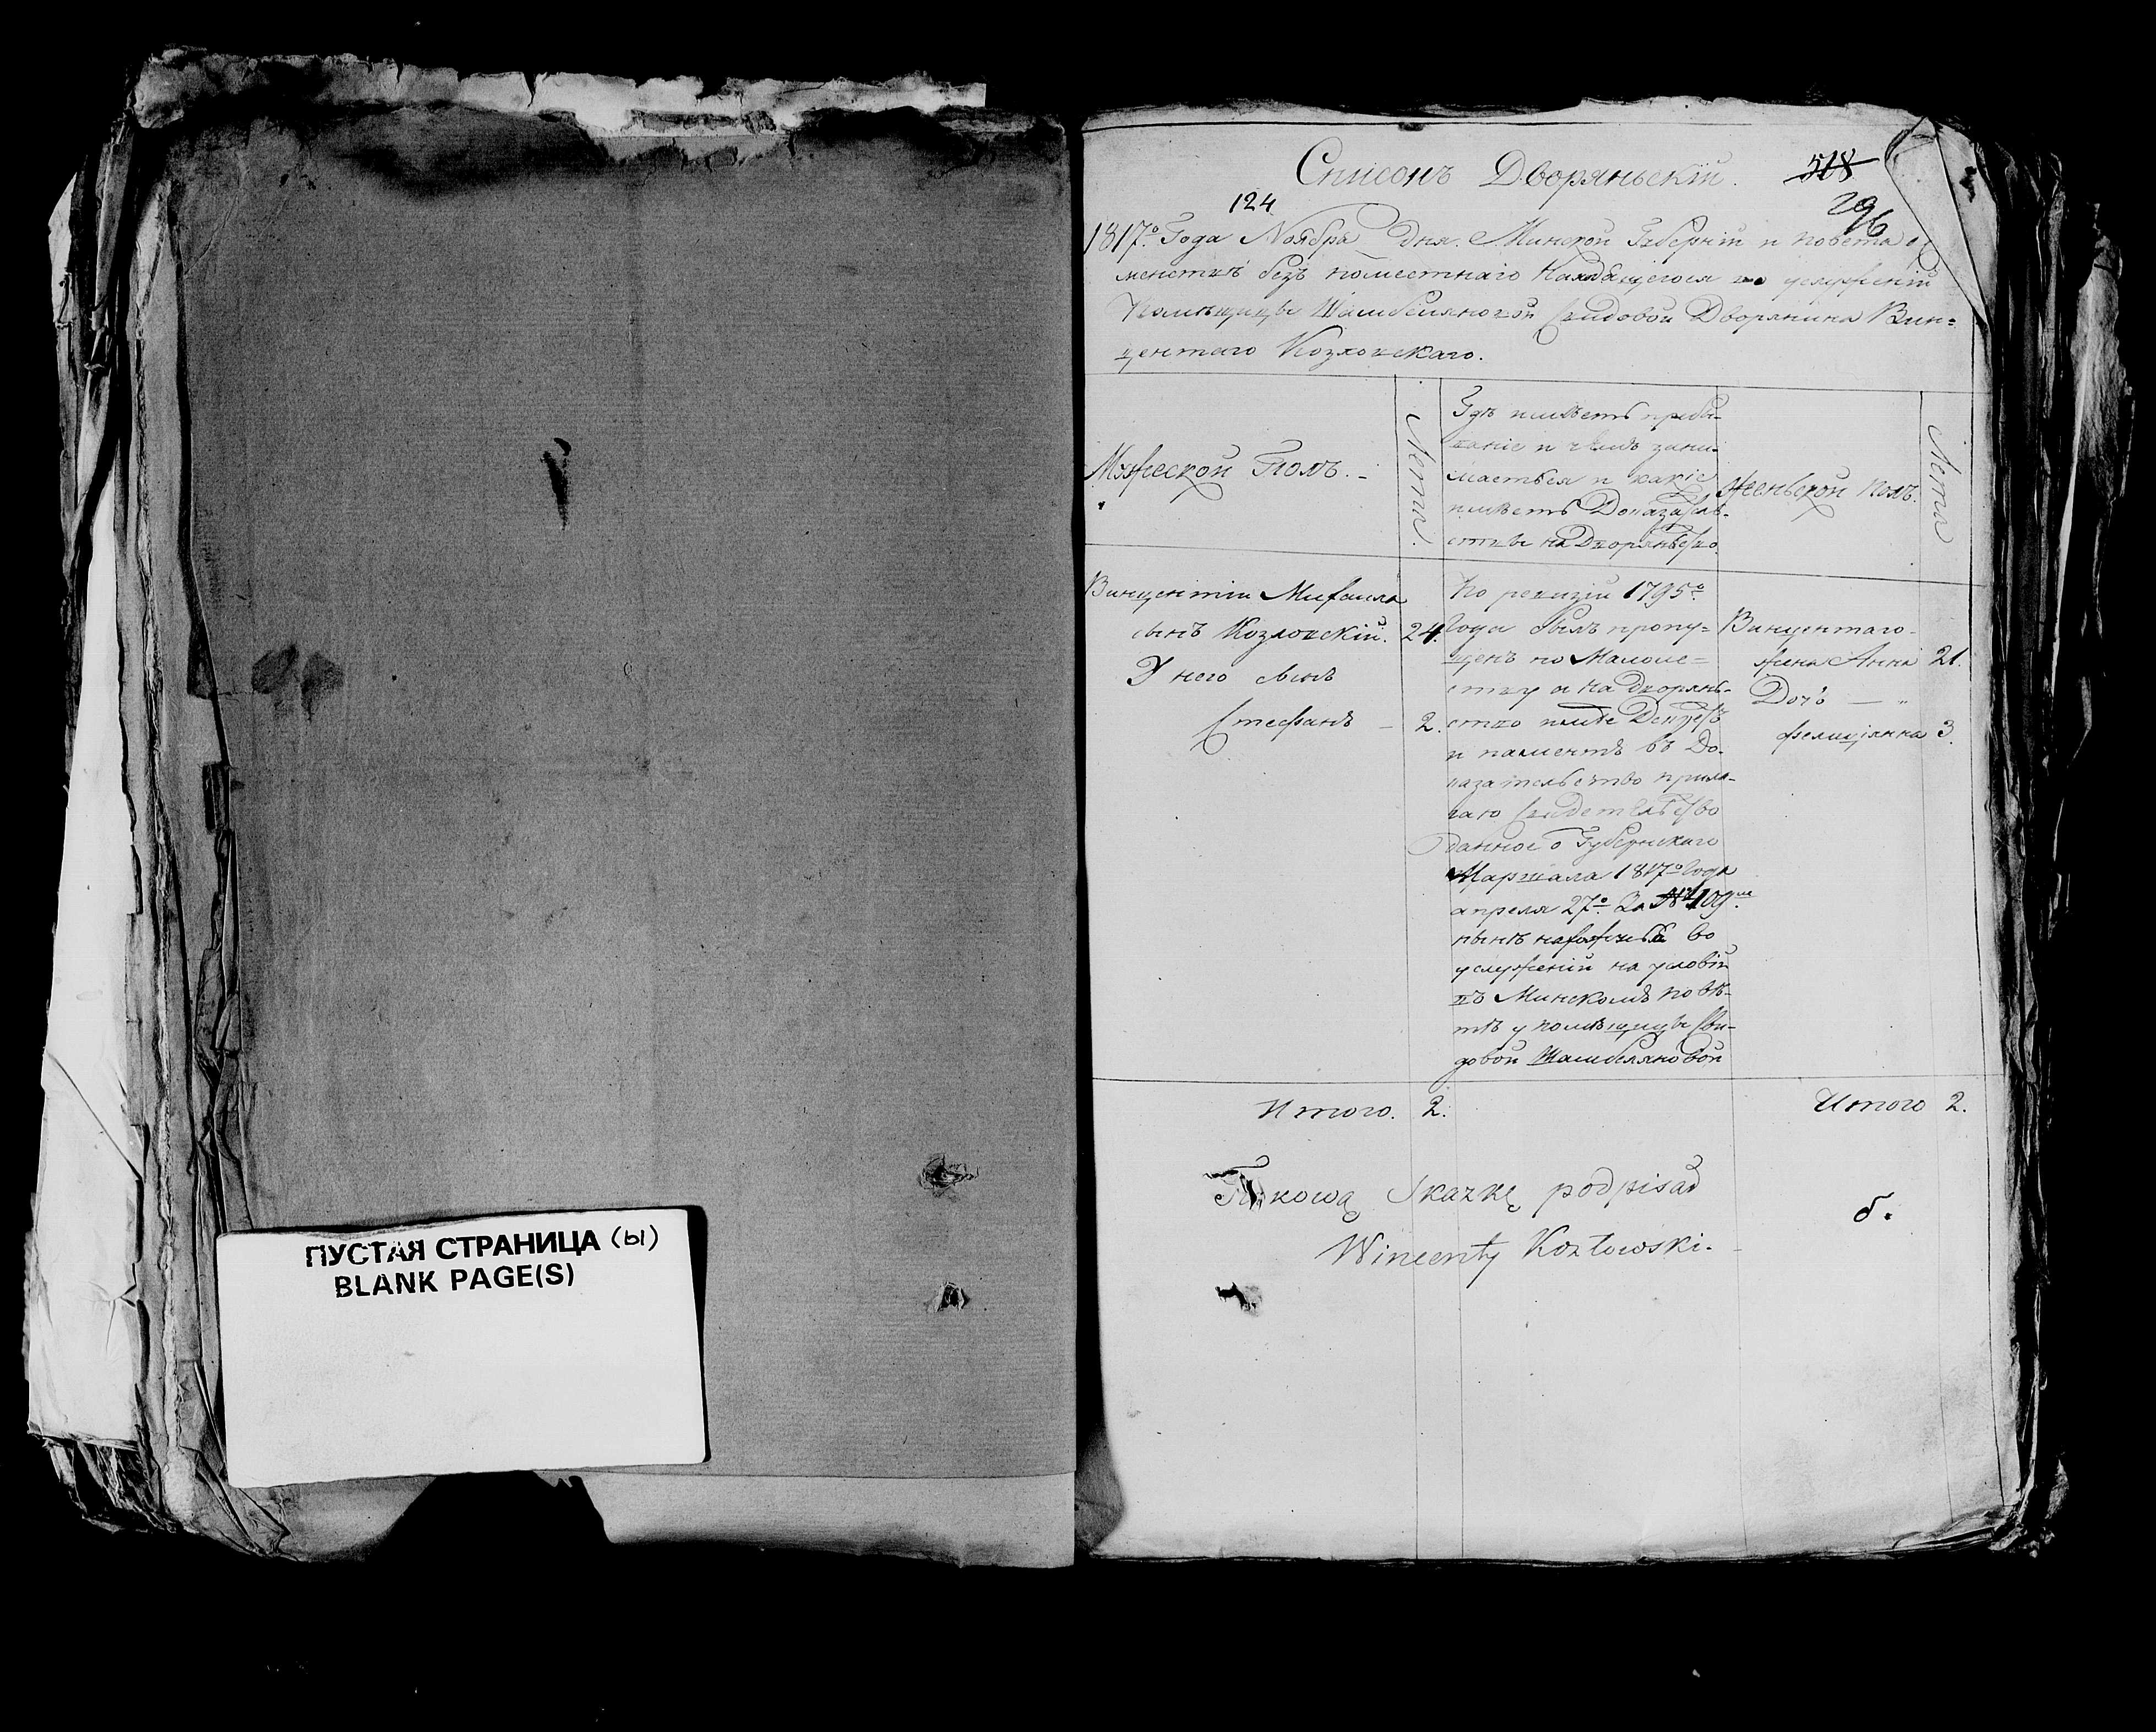 ПУСТАЯ СТРАНИЦА (ы)
BLANK PAGE(S)
Списокъ Дворяньскій. 518
124 296
1817го Года Ноября Дня. Минской Губерніи и повета
безъ поместнаго находящегося услуженіи
Помѣщицы Шамбеляновой Свидовой Дворянина Вин=
центаго Козловскаго.
Мужеской Полъ.
Лета.
Гдѣ имѣетъ пребы-
ваніе и чемъ зани-
маеться и какіе
имѣетъ Доказатель-
ствы на Дворяньство
Женьской полъ.
Лета
Винцентіи Михаила
сынъ Козловскій. 24.
У него сынъ
Стефанъ — 2.
По ревизіи 1795го
Года былъ пропу=
щенъ по Малоле=
ству а на дворянь-
ство
въ До-
казательство прила-
гаю Свидетельство
данное о Губернскаго
Маршала 1817го Года
апреля 27го За № 109
нынѣ во
услуженіи на условіи
въ Минскомъ повѣ-
тѣ у помѣщицы Сви-
довой Шамбеляновой
Винцентаго
жена Анна 21.
Дочь — "
Фелиціянна 3.
Итого. 2.
Итого 2.
Takową Skazkę podpisał
Wincenty Kozłowski.
б.